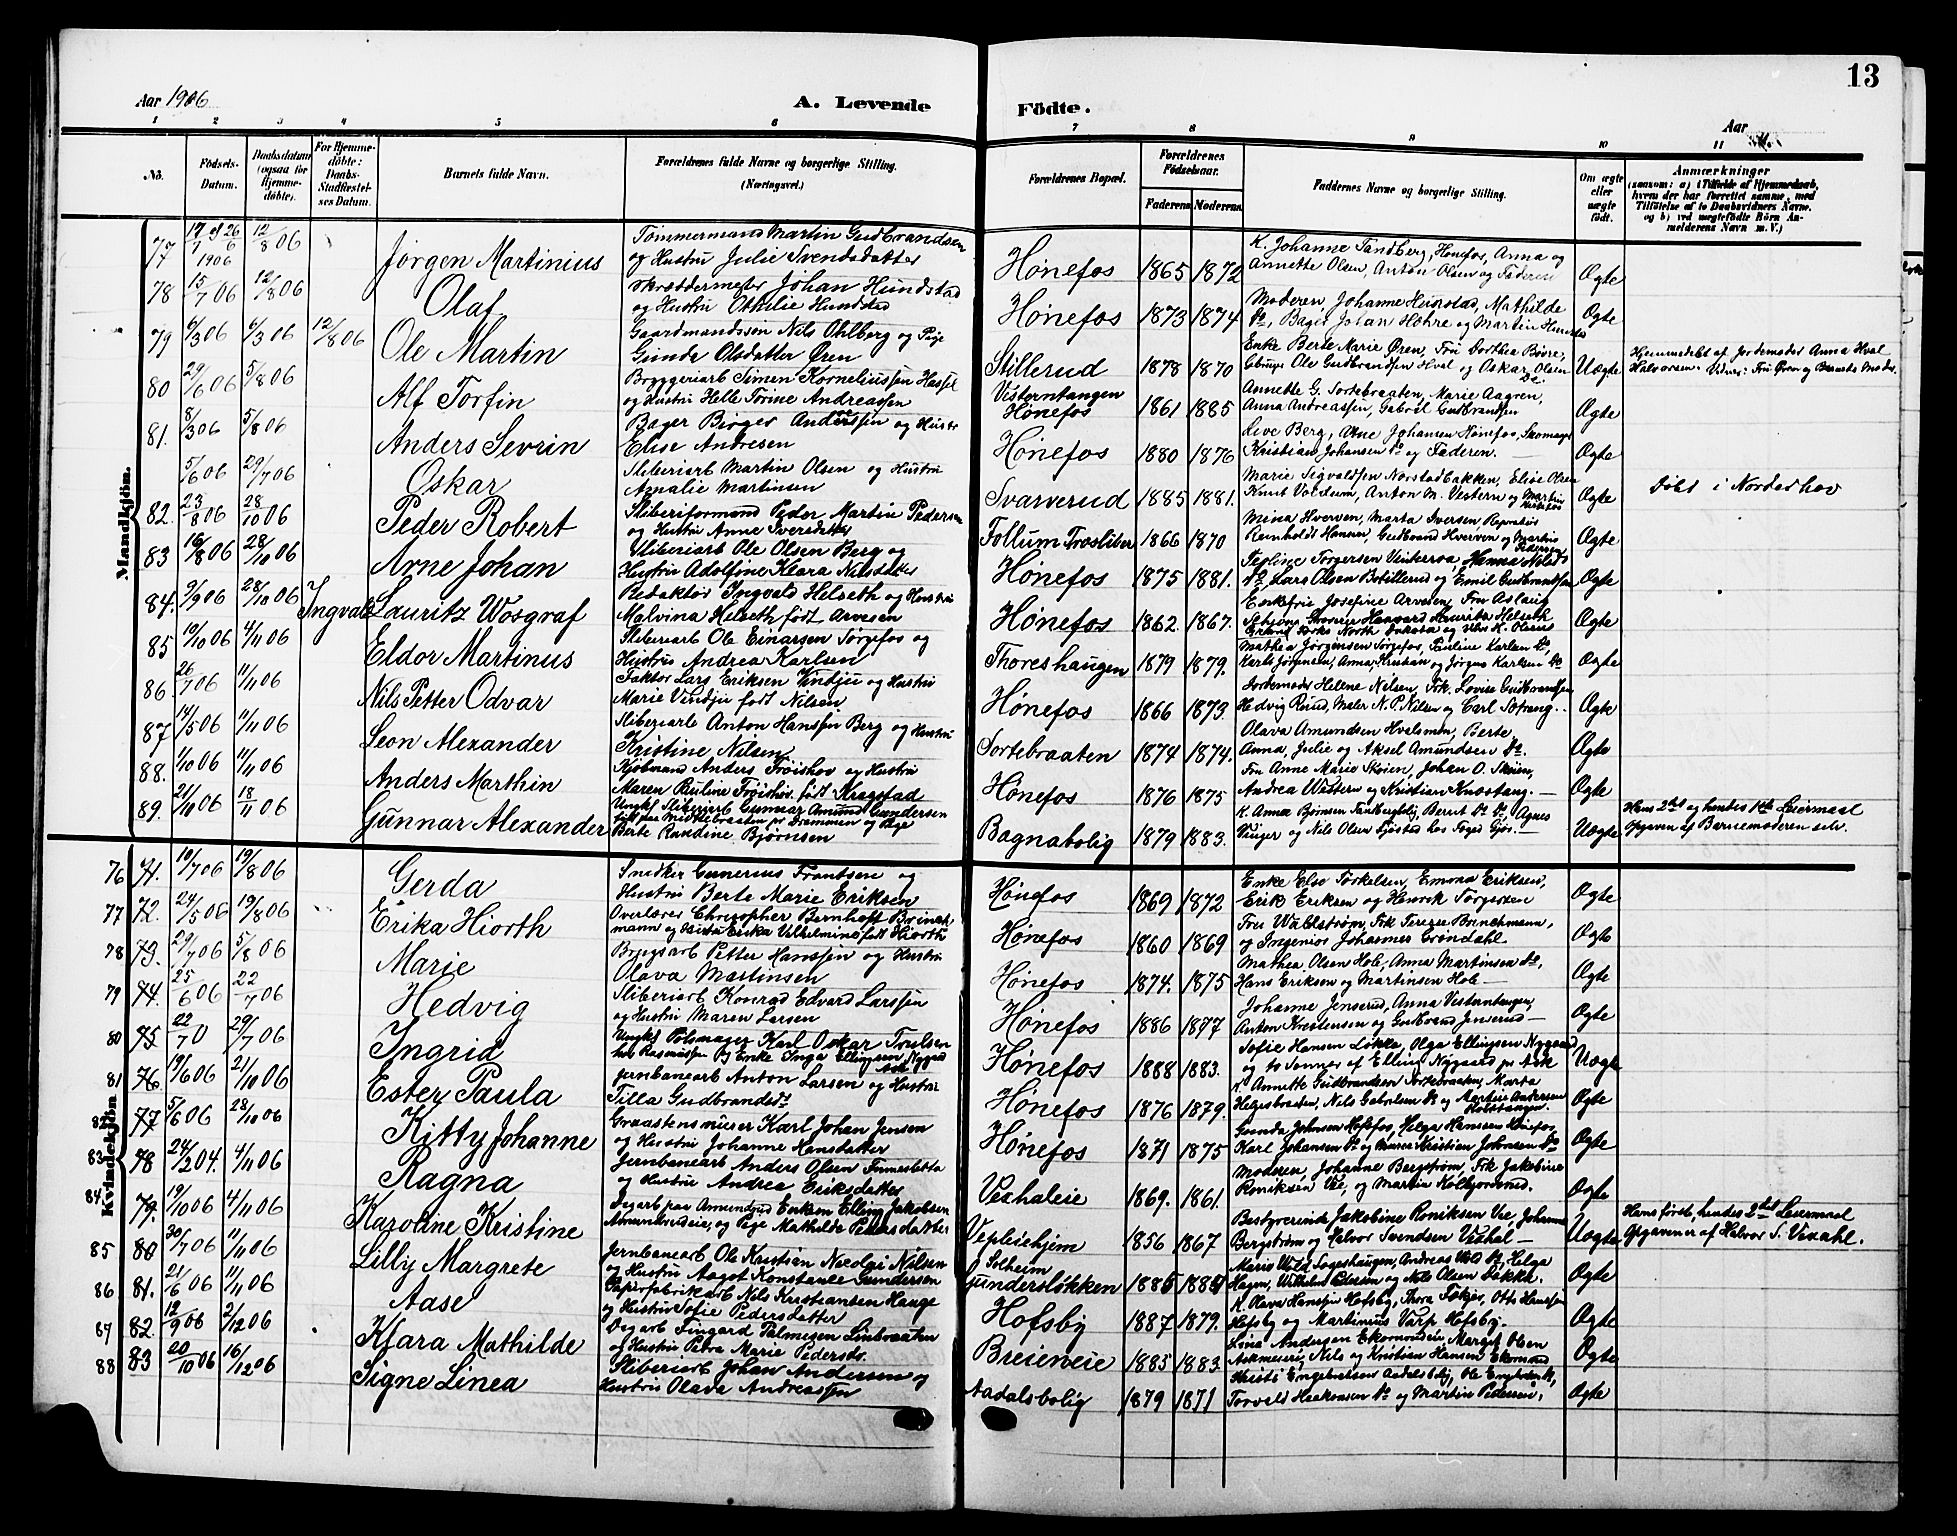 13
Aar 1906
A. Levende Födte.
Aar
1 2 3 4 5 6 7 8 9 10 11
No.
Födsels-Datum.
Daabsdatum (ogsaa för Hjemmedöbte).
For Hjemmedöbte: Daabs-Stadfæstelses Datum.
Barnets fulde Navn.
Forældrenes fulde Navne og borgerlige Stilling.
(Næringsvei.)
Forældrenes Bopæl.
Forældrenes Födselsaar.
Faderens. Moderens.
Faddernes Navne og borgerlige Stilling.
Om ægte eller uægte födt.
Anmærkninger
(saasom: a) i Tilfælde af Hjemmedaab, hvem der har forrettet samme, med Tilföielse af to Daabsvidners Navne, og b) ved uægtefödte Börn Anmelderens Navn m. V.)
Mandkjön.
77 17/7 1906 12/8 06 Jörgen Martinius Tömmermand Martin Gudbrandsen
og Hustru Julie Svendsdatter Hønefos 1865 1872 K. Johanne Tandberg, Hønefos, Anna og
Annette Olsen, Anton Olsen og Faderen Ægte
78 15/7 06 12/8 06 Olaf Skræddermester Johan Hundstad
og Hustru Othilie Hundstad Hønefos 1873 1874 Moderen, Johanne Hunstad, Mathilde
do, Bager Johan Høhre og Martin Hunstad Ægte
79 6/3 06 6/3 06 12/8 06 Ole Martin Gaardmandssøn Nils Ohlberg og Pige
Gunda Olsdatter Øren Stillerud 1878 1870 Enke Berte Marie Øren, Fru Dorthea Bøvre,
Gbruger Ole Gudbrandsen Hval og Oskar Olsen do Uægte Hjemmedøbt af Jordemoder Anna Hval
80 29/6 06 5/8 06 Alf Torfin Bryggeriarb Simen Korneliussen
og Hustru Helle Torine Andreassen Vesterntangen
Hønefos 1861 1885 Annette G. Sortebraaten, Marie Aagren,
Anna Andreassen, Gabriel Gudbrandsen Ægte
81. 8/3 06 5/8 06 Anders Sevrin Bager Birger Anderssen og Hustru
Elise Andresen Hønefos 1880 1876 Live Berg, Une Johansen Hønefos, Skomager
Kristian Johansen do og Faderen. Ægte
5/6 06 29/7 06 Oskar Sliberiarb Martin Olsen og Hustru
Amalie Martinsen Svarverud 1885 1881. Marie Sigvaldsen Norstadbakken, Elise Olsen
Knut Voldum, Anton M. Vestern og Martin Ægte Döbt i Norderhov
82. 23/8 06 28/10 06 Peder Robert Sliberiformand Peder Martin Pedersen
og Hustru Anne Syversdatter Follum Træsliberi 1866 1870 Mina Hverven, Marta Iversen, Reparatør
Reinholdt Hansen, Gudbrand Hverven og Martin Pedersen Ægte
83 16/8 06 28/10 06 Arne Johan Sliberiarb Ole Olsen Berg og
Hustru Adolfine Klara Nilsdatter Hønefos 1875 1881. Lars Olsen Bobillerud og Emil Gudbrandsen Ægte
84. 9/9 06 28/10 06 Ingvald Lauritz Wosgraf Redaktør Ingvald Helseth og Hustru
Malvina Helseth født Arvesen Hønefos 1862 1867. Enkefru Josefine Arvesen, Fru Aslaug Ægte
85 19/10 06 4/11 06 Eldor Martinus Sliberiarb Ole Einarsen Sørgefos og
Hustru Andrea Karlsen Thoreshaugen 1879 1879. Mathea Jørgensen Sørgefos, Pauline Karlsen do,
Karl Jørgensen, Anna, Kristian og Jørgen Karlsen do Ægte
86 26/7 06 11/11 06 Nils Petter Odvar Faktor Lars Eriksen Vindju og Hustru
Marie Vindju født Nilsen Hønefos 1866 1873. Jordemoder Helene Nilsen, Frk. Lovise Gudbrandsen
Hedvig Ruud, Maler N. P. Nilsen og Carl Sætrang. Ægte
87 14/5 06 11/11 06 Leon Alexander Sliberiarb Anton Hanssen Berg og Hustru
Kristine Nilsen Sortebraaten 1874 1874. Olava Amundsen Hvalsmoen, Berte,
Anna, Julie og Aksel Amundsen do. Ægte
88. 1/10 06 11/11 06 Anders Marthin Kjøbmand Anders Frøishov og Hustru
Maren Pauline Frøishov født Kragstad Hønefos 1876 1875 Fru Anne Marie Skøien, Johan O. Skøien,
Andrea Western og Kristian Knostang. Ægte
89. 21/10 06 18/11 06 Gunnar Alexander Ungkl Sliberiarb Gunnar Amund Gundersen
tilh paa Midtebraaten pr Drammen og Pige
Berte Randine Bjørnsen Bagnabolig 1879 1883. K. Anne Bjørnsen Tandbergbolig, Berit do do Agnes
Unger og Nils Olsen Fjøsted hos Foged Gjør. Uægte Hans 2det og hendes 1ste Leiermaal
Opgaven af Barnemoderen selv.
Kvindekjön
76 71. 19/7 06 19/8 06 Gerda Snedker Gunerius Frantsen og
Hustru Berte Marie Eriksen Hønefos 1869 1872 Enke Else Torkelsen, Emma Eriksen,
Erik Eriksen og Henrik Torgersen Ægte
77 72. 24/5 06 19/8 06 Erika Hiorth Overlærer Christopher Bernhoft Brinch
mann og Hustru Erika Vilhelmine født Hiorth Hønefos 1860 1869 Fru Wahlstrøm, Frk Terese Brinchmann,
og Ingeniør Johannes Grøndahl. Ægte
78 73. 29/7 06 5/8 06 Marie Brugsarb Petter Hanssen og Hustru
Olava Martinsen Hønefos 1874. 1875 Mathea Olsen Hole, Anna Martinsen do,
Hans Eriksen og Martinsen Hole Ægte
79 74. 25/6 06 22/7 06 Hedvig Sliberiarb Konrad Edvard Larssen
og Hustru Maren Larsen Hønefos 1886 1877 Johanne Jenserud, Anna Vesterntangen,
Anton Kristensen og Gudbrand Jenserud Ægte
80 75 22/7 0 29/7 06 Ingrid Ungkl Pølsmager Karl Oskar Trulsen
hos Rasmussen og Enke Inga Ellingsen Nygaard Ask Hønefos 1888 1883. Sofie Hansen Løkke, Olga Ellingsen Nygaard
og to Sønner af Elling Nygaard pr Ask Uægte
81 76 19/6 06 21/10 06 Ester Paula Jernbanearb Anton Larsen og Hustru
Tilla Gudbrandsdt Hønefos 1876 1879. K. Annette Gudbrandsen Sortebraaten, Marta
Helgesbraaten, Nils Gabrielsen do og Martin Andersen Ægte
82 77 5/6 06 28/10 06 Kitty Johanne Graastensmurer Karl Johan Jensen
og Hustru Johanne Hansdatter Hønefos 1871 1875 Gunda Johnsen Hofsfos, Helga Hanssen Hønefos,
Karl Johansen do og Kristian Johnsen do Ægte
83 78 24/2 04. 4/11 06 Ragna Jernbanearb Anders Olsen
og Hustru Andrea Eriksdatter Vexhaleie 1869. 1861. Moderen, Johanne Bergstrøm, Frk Jakobine
Roniksen Ve, og Martin Kolbjørnsrud. Ægte
84 79. 19/10 06 4/11 06 Karoline Kristine Dagarb paa Amundrud Enkem Elling Jakobsen
Amundrudeie, og Pige Mathilde Pedersdatter Vepleiehjem 1856 1867 Bestyrerinde Jakobine Roniksen Ve, Johanne
Bergstrøm og Halvor Svendsen Vexhal Uægte Hans første, hendes 2det Leiermaal
Opgaven er af Halvor S. Vexahl.
85 80 30/7 06 11/11 06 Lilly Margrete Jernbanearb Ole Kristian Nicolai Nilsen
og Hustru Aagot Konstance Gundersen Solheim
Gundersløkken 1885 1884 Hagen, Wilhelm Pedersen og Nils Olsen Løkke. Ægte
86 81. 21/6 06 11/11 06 Aase Papirfabrikarb Nils Kristiansen Hauge
og Hustru Sofie Pedersdatter Hofsby 1887 1879. K. Olava Hanssen Hofsby, Thora Foker, Otto Hanssen
Hofsby og Martinius Varp Hofsby. Ægte
87 82. 12/9 06 2/12 06 Klara Mathilde Dagarb Fingard Palmesen Linbraaten
og Hustru Petra Marie Pedersdt. Breieneie 1885 1883. Lina Andersen Ekornrudeie, Margit Olsen
Askmeieri, Nils og Kristian Hansen Ekornrud Ægte
88 83 20/10 06 16/12 06 Signe Linea Sliberiarb Johan Andersen og
Hustru Olava Andreassen Aadalsbolig 1879 1871 Kristi Engebretsen Aadalsbolig, Ole Engebretsen,
Torvald Haakensen do og Martin Pedersen, Ægte